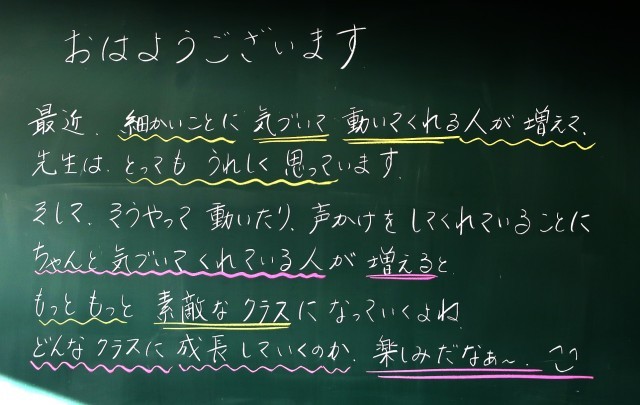 おはようございます
最近、細かいことに気づいて動いてくれる人が増えて、
先生は、とってもうれしく思っています。
そして、そうやって動いたり、声かけをしてくれていることに
ちゃんと気づいてくれている人が増えると
もっともっと素敵なクラスになっていくよね
どんなクラスに成長していくのか、楽しみだなぁ〜。